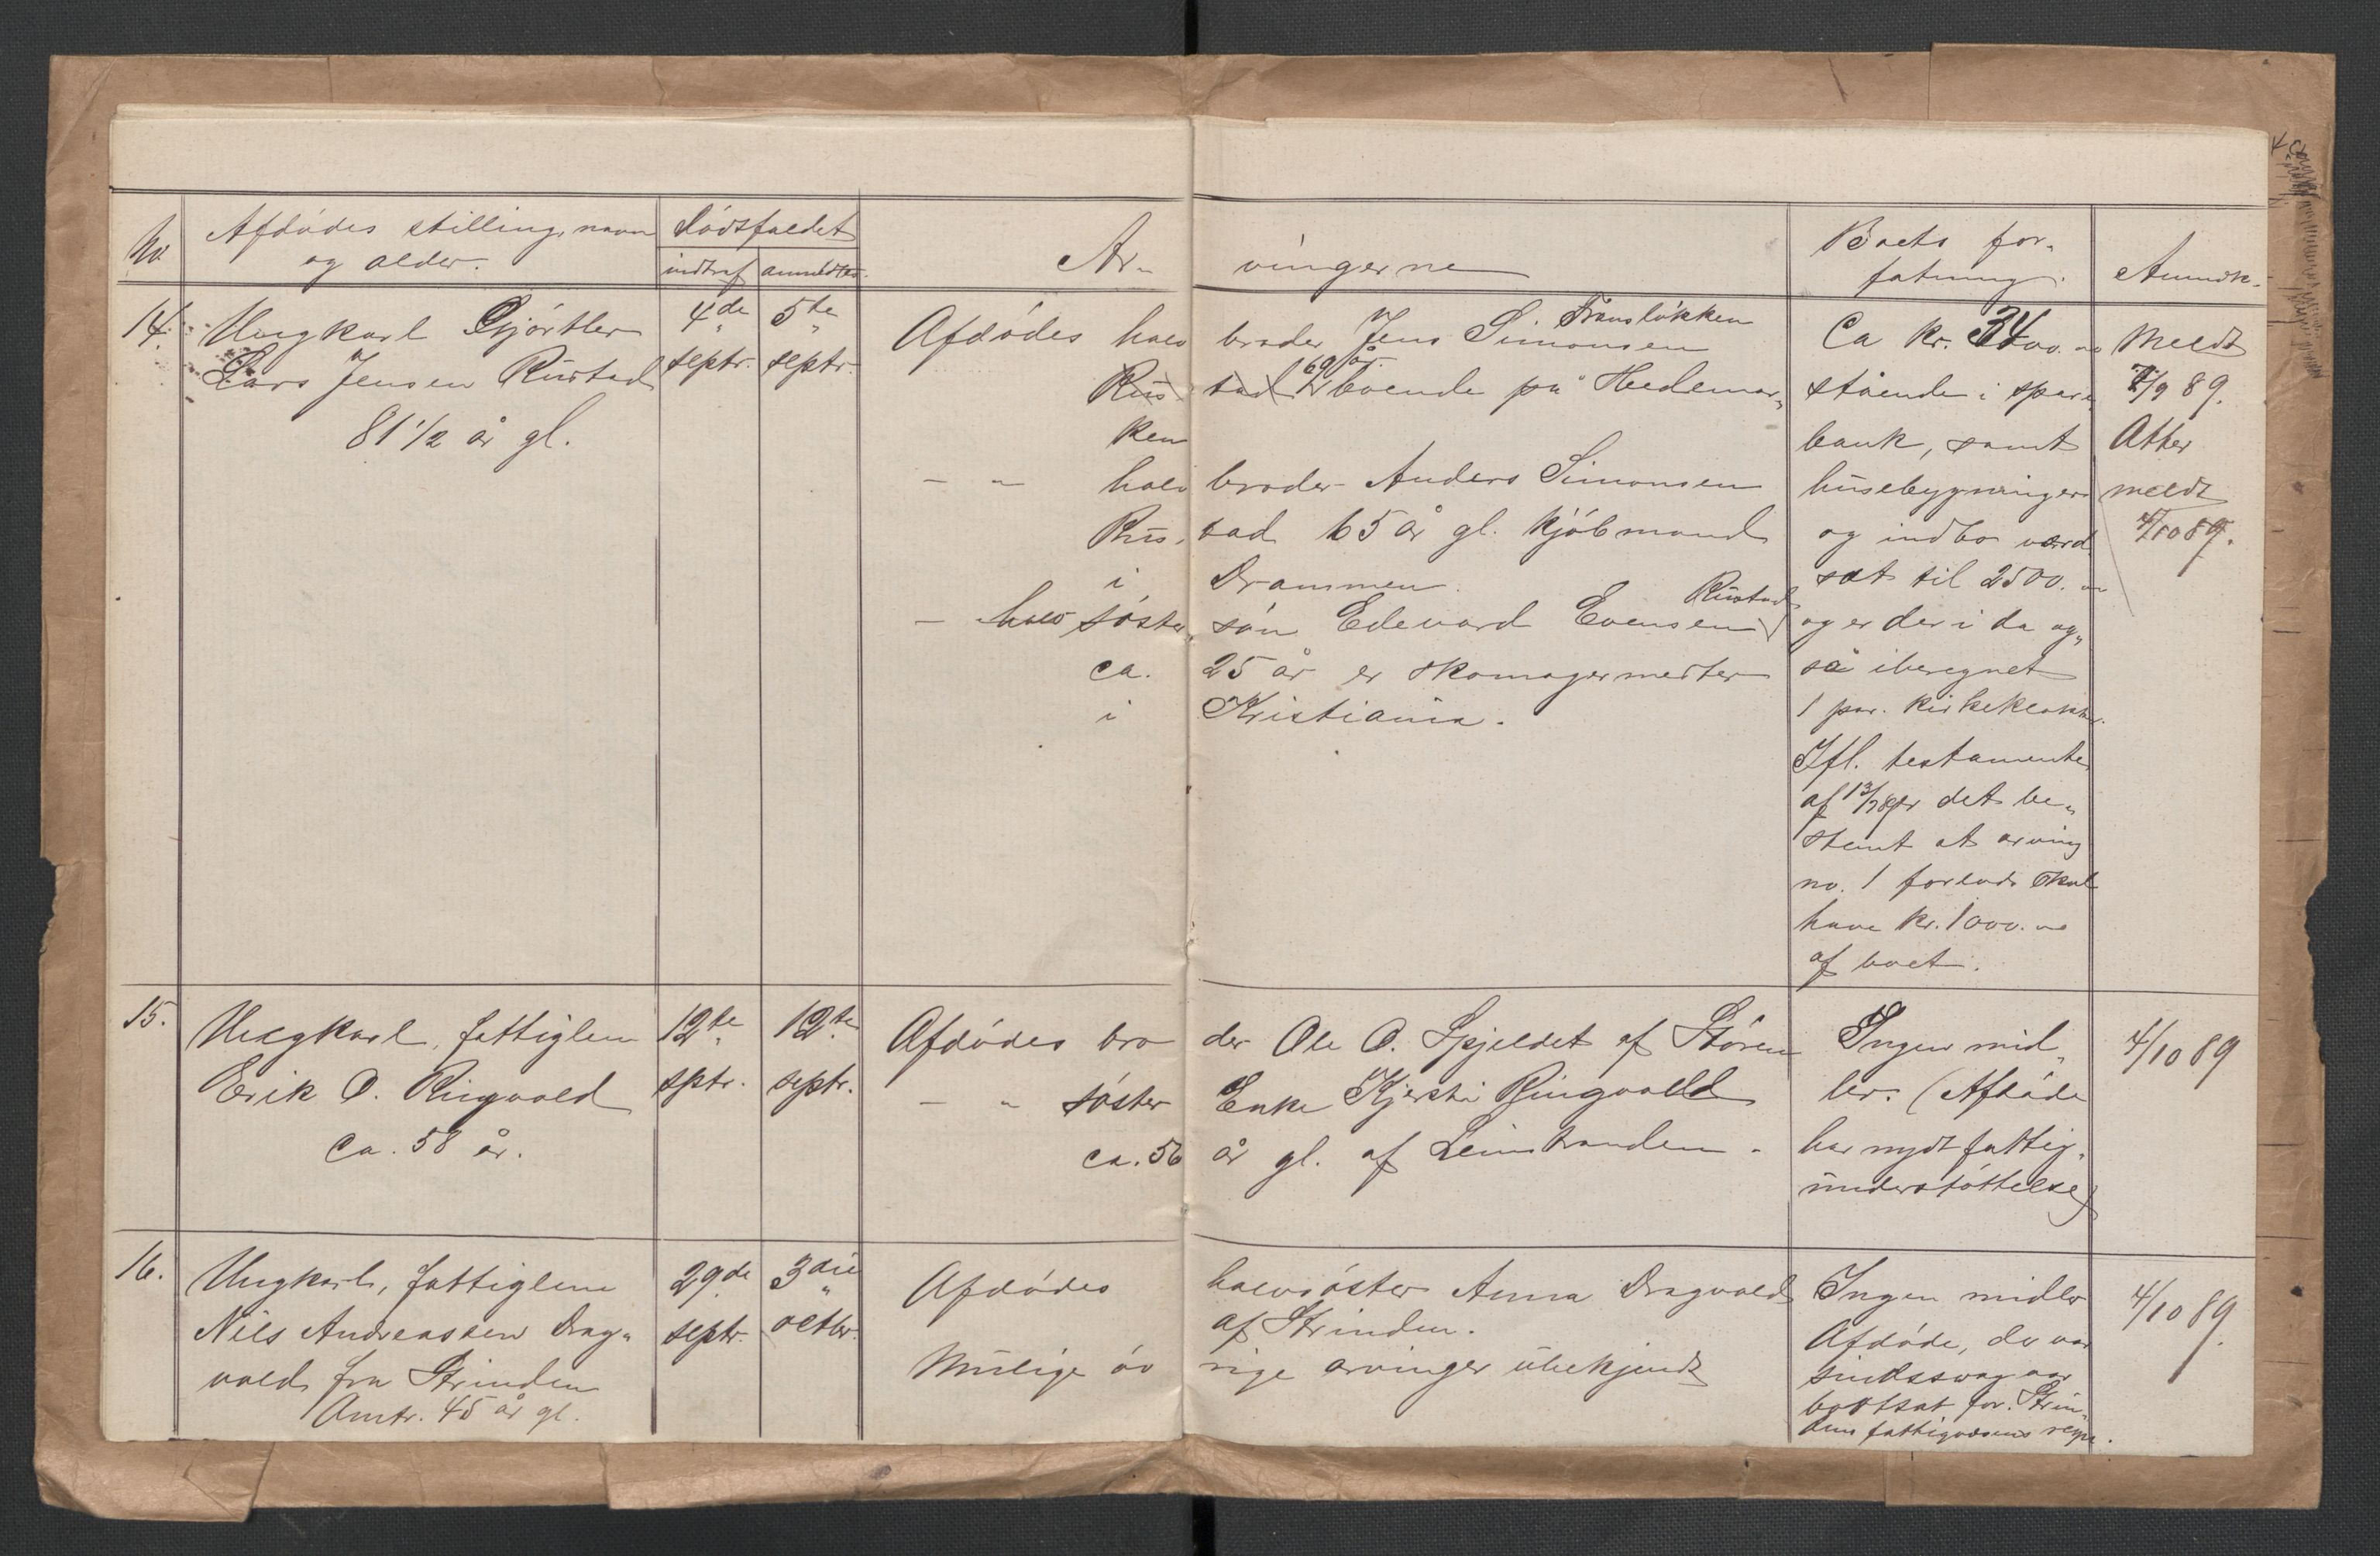 No
Afdødes stilling, navn
og alder.
Dødsfaldet
indtraf anmeldtes.
Ar-
vingerne
Boets for-
fatning.
Anmdk.
14.
Ungkarl Gjørtler
Lars Jensen Rustad
81 1/2 år gl.
4de
septr.
5te
septr.
Afdødes halv broder Jens Simonsen
Rus- tad 69 år. boende på Hedemar-
ken
— " — halv broder Anders Simonsen
Rus- tad 65 år gl. kjøbmand
i Drammen.
— halv søster- søn Edevard Evensen Rustad
ca. 25 år er skomagermester
i Kristiania.
Ca kr. 3400.
stående i spare-
bank, samt
husebygninger
og indbo værd
sat til 2500.
og er der i da og-
så iberegnet
1 par. kirkeklokker.
Ifl. testamente
af 13/7 er det be-
stemt at arving
no. 1 forlods skal
have kr. 1000.
af boet.
Meldt
/9 89.
Atter
meldt
4/10 89.
15.
Ungkarl, fattiglem
Erik O. Ringvold
ca. 58 år.
12te
sptr.
12te
septr.
Afdødes bro der Ole O. Spjeldet af Støren
— " — søster Enke Kjersti Ringvold
ca. 56 år gl. af Leinstranden.
Ingen mid-
ler. (Afdøde
har nydt fattig-
understøttelse)
4/10 89
16.
Ungkarl, fattiglem
Nils Andreassen Drag-
vold fra Strinden
Omtr. 45 år gl.
29de
septr.
3die
octbr.
Afdødes halvsøster Anna Dragvold
af Strinden.
Mulige øv rige arvinger ubekjendt
Ingen midler
Afdøde, der var
sindssvag var
bortsat for Strin-
dens fattigvæsens regn.
4/10 89.